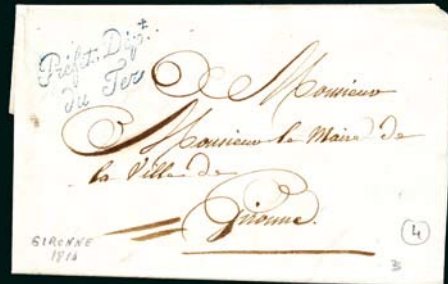 Préfet. Dépt.
du Ter
Monsieur
Monsieur le Maire de
la Ville de
Gironne.
GIRONNE
1814
4
3